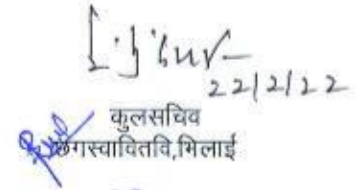 22/2/22
कुलसचिव
छगस्वावितवि,भिलाई